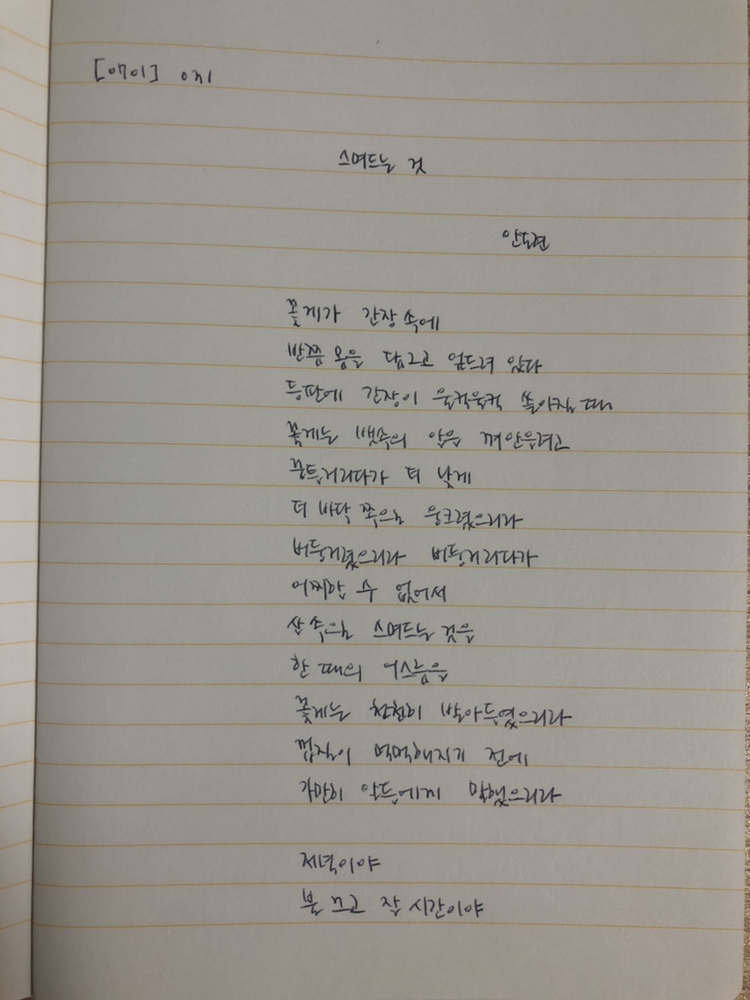 스며드는 것
안도현
꽃게가 간장 속에
반쯤 몸을 담그고 엎드려 있다
등판에 간장이 울컥울컥 쏟아질 때
꽃게는 뱃속의 알을 껴안으려고
꿈틀거리다가 더 낮게
더 바닥 쪽으로 웅크렸으리라
버둥거렸으리라 버둥거리다가
어찌할 수 없어서
살 속으로 스며드는 것을
한 때의 어스름을
꽃게는 천천히 받아들였으리라
껍질이 먹먹해지기 전에
가만히 알들에게 말했으리라
저녁이야
불 끄고 잘 시간이야